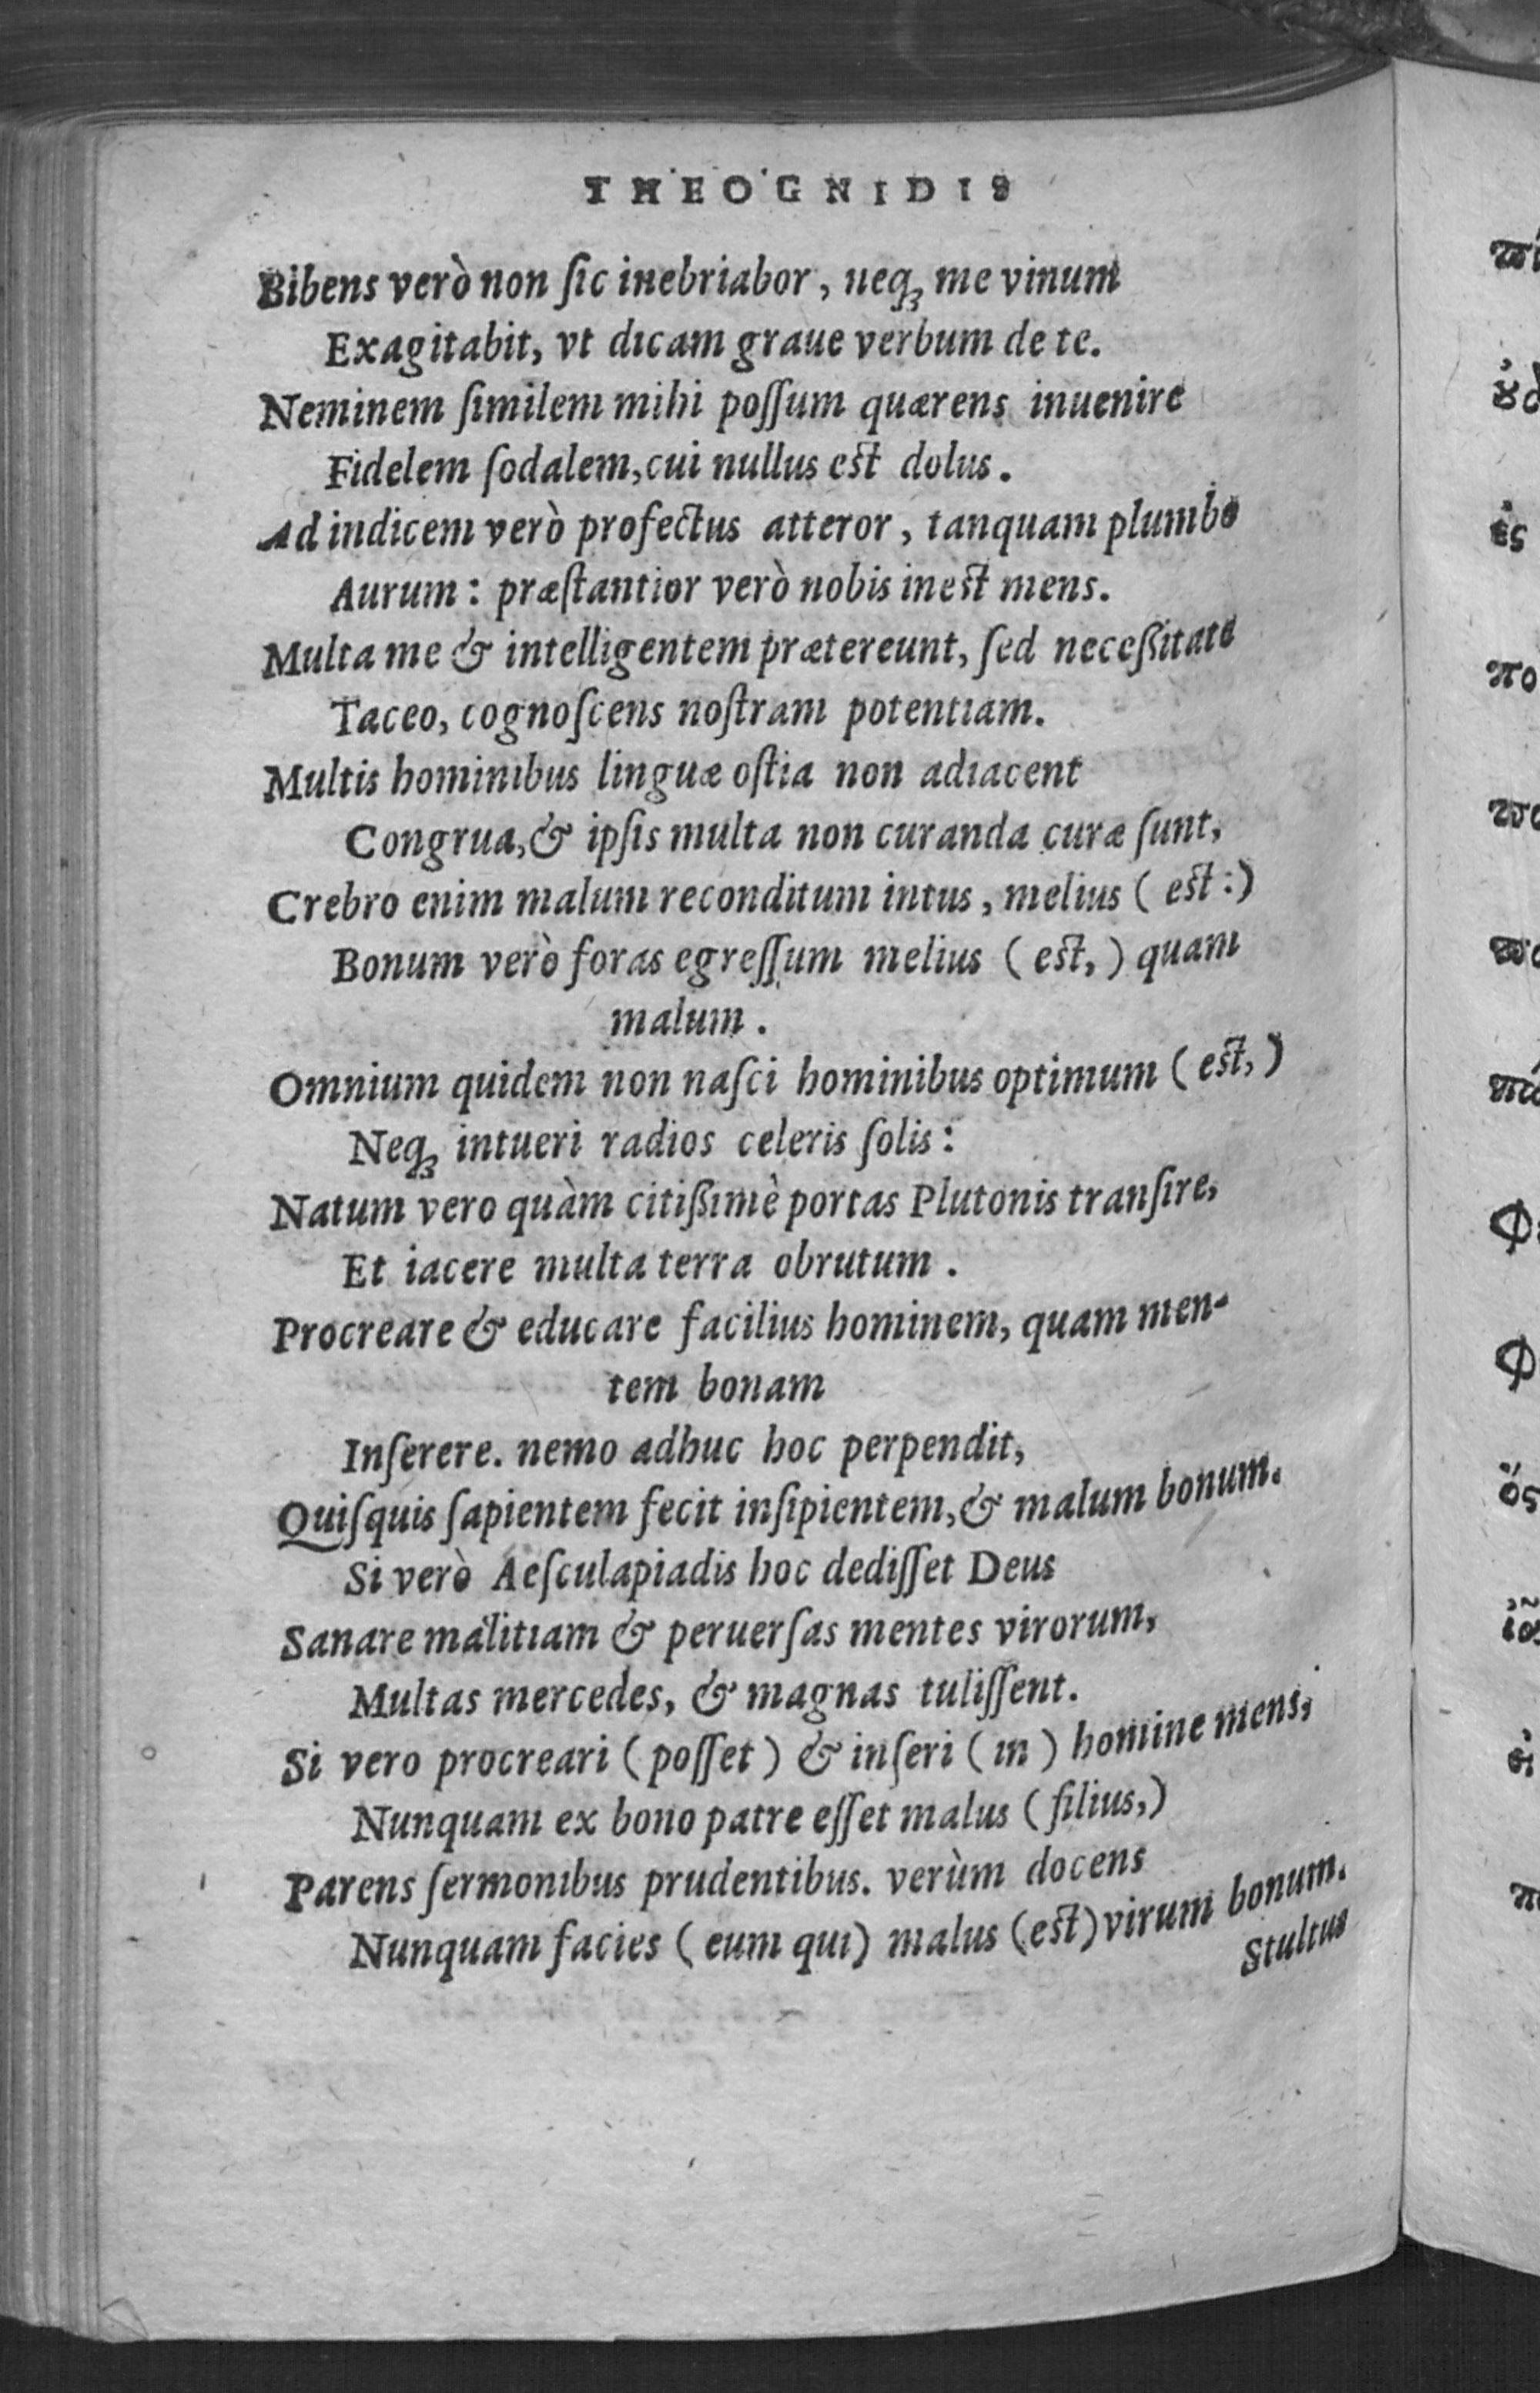 THEOGNIDIS
Bibens verò non ſic inebriabor, neq; me vinum
Exagitabit, vt dicam graue verbum de te.
Neminem ſimilem mihi poſſum quærens inuenire
Fidelem ſodalem, cui nullus eſt dolus.
Ad indicem verò profectus atteror, tanquam plumbo
Aurum: præſtantior verò nobis ineſt mens.
Multa me & intelligentem prætereunt, ſed neceßitate
Taceo, cognoſcens noſtram potentiam.
Multis hominibus linguæ oſtia non adiacent
Congrua, & ipſis multa non curanda curæ ſunt,
Crebro enim malum reconditum intus, melius (eſt:)
Bonum verò foras egreſſum melius (eſt,) quam
malum.
Omnium quidem non naſci hominibus optimum (eſt,)
Neq; intueri radios celeris ſolis:
Natum vero quàm citißimè portas Plutonis tranſire,
Et iacere multa terra obrutum.
Procreare & educare facilius hominem, quam men-
tem bonam
Inſerere. nemo adhuc hoc perpendit,
Quiſquis ſapientem fecit inſipientem, & malum bonum.
Si verò Aeſculapiadis hoc dediſſet Deus
Sanare malitiam & peruerſas mentes virorum,
Multas mercedes, & magnas tuliſſent.
Si vero procreari (poſſet) & inſeri (in) homine mens,
Nunquam ex bono patre eſſet malus (filius,)
Parens ſermonibus prudentibus. verùm docens
Nunquam facies (eum qui) malus (eſt) virum bonum.
Stultus